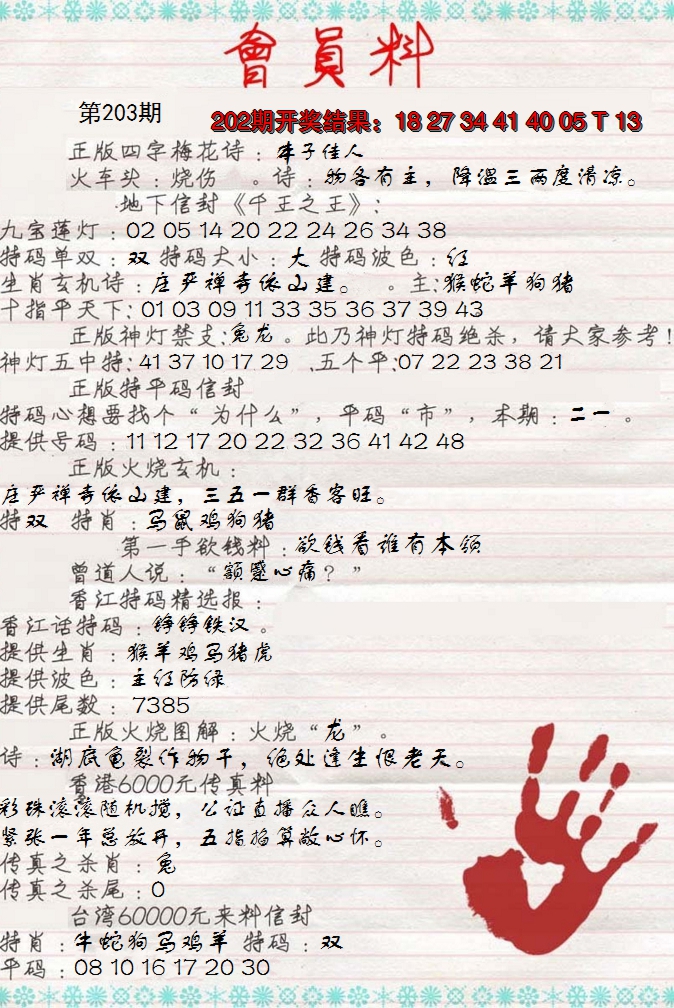 會員料
第203期
202期开奖结果：18 27 34 41 40 05 T 13
正版四字梅花诗：才子佳人
火车头：烧伤 。诗：物各有主，降温三两度清凉。
地下信封《千王之王》：
九宝莲灯：02 05 14 20 22 24 26 34 38
特码单双：双 特码大小：大 特码波色：红
生肖玄机诗：庄严禅寺依山建。 。主：猴蛇羊狗猪
十指平天下：01 03 09 11 33 35 36 37 39 43
正版神灯禁支：兔龙。此乃神灯特码绝杀，请大家参考！
神灯五中特：41 37 10 17 29 .五个平：07 22 23 38 21
正版特平码信封
特码心想要找个“为什么”，平码“市”，本期：二一 。
提供号码：11 12 17 20 22 32 36 41 42 48
正版火烧玄机：
庄严禅寺依山建，三五一群香客旺。
特双 特肖：马鼠鸡狗猪
第一手欲钱料：欲钱看谁有本领
曾道人说：“额蹙心痛？”
香江特码精选报：
香江话特码：铮铮铁汉。
提供生肖：猴羊鸡马猪虎
提供波色：主红防绿
提供尾数：7385
正版火烧图解：火烧“龙”。
诗：湖底龟裂作物干，绝处逢生恨老天。
香港6000元传真料
彩珠滚滚随机搅，公证直播众人瞧。
紧张一年总放开，五指掐算敞心怀。
传真之杀肖：兔
传真之杀尾：0
台湾60000元来料信封
特肖：牛蛇狗马鸡羊 特码：双
平码：08 10 16 17 20 30